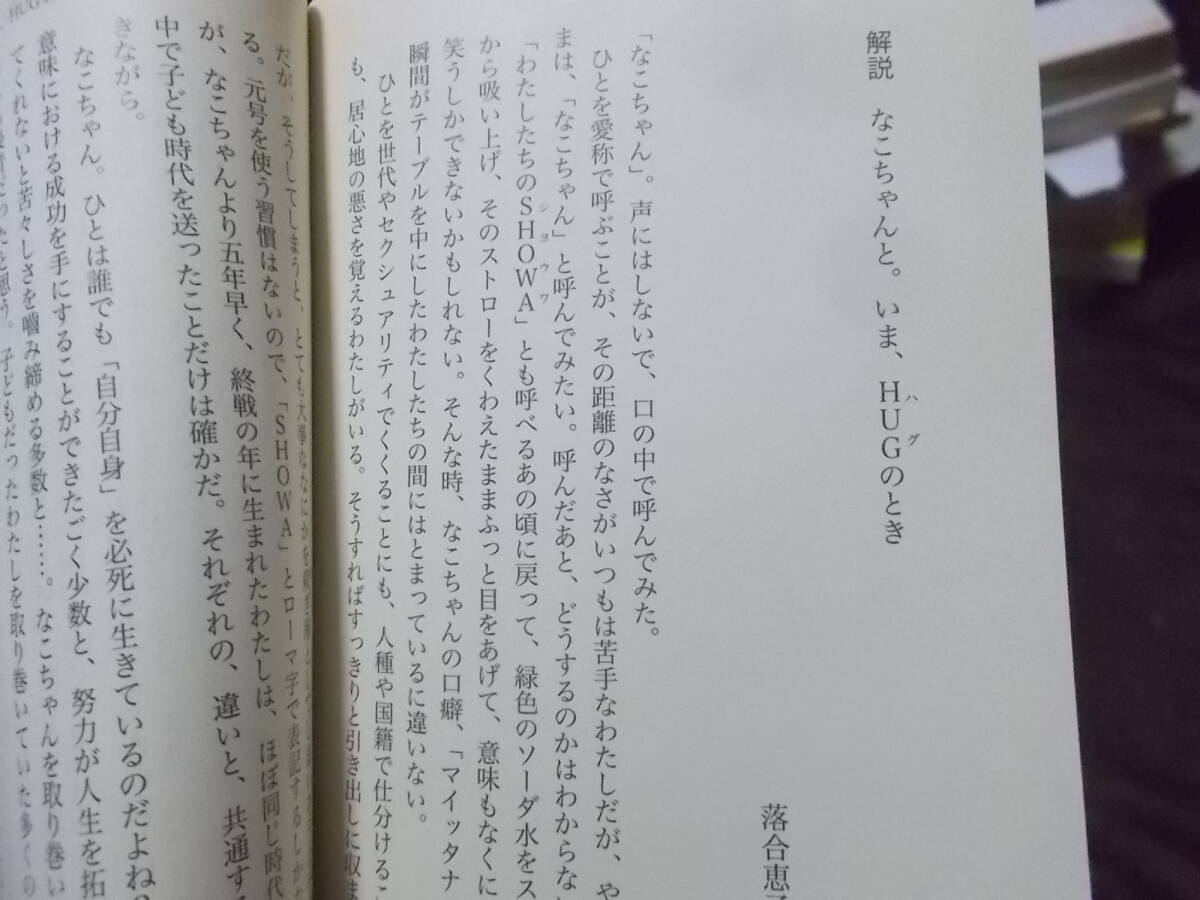 解説　なこちゃんと。いま、HUGのとき
ハグ
落合恵
「なこちゃん」。声にはしないで、口の中で呼んでみた。
ひとを愛称で呼ぶことが、その距離のなさがいつもは苦手なわたしだが、や
まは、「なこちゃん」と呼んでみたい。呼んだあと、どうするのかはわからな
「わたしたちのSHOWA」とも呼べるあの頃に戻って、緑色のソーダ水をス
ショウワ
から吸い上げ、そのストローをくわえたままふっと目をあげて、意味もなくに
笑うしかできないかもしれない。そんな時、なこちゃんの口癖、「マイッタナ
瞬間がテーブルを中にしたわたしたちの間にはとまっているに違いない。
ひとを世代やセクシュアリティでくくることにも、人種や国籍で仕分けるこ
も、居心地の悪さを覚えるわたしがいる。そうすればすっきりと引き出しに収ま
だが、そうしてしまうと、とても大事ななにかを
る。元号を使う習慣はないので、「SHOWA」とローマ字で表記するしかな
が、なこちゃんより五年早く、終戦の年に生まれたわたしは、ほぼ同じ時代
中で子ども時代を送ったことだけは確かだ。それぞれの、違いと、共通す
きながら。
なこちゃん。ひとは誰でも「自分自身」を必死に生きているのだよね
意味における成功を手にすることができたごく少数と、努力が人生を拓
てくれないと苦々しさを嚙み締める多数と……。なこちゃんを取り巻い
だったと思う。子どもだったわたしを取り巻いていた多くの
HUG